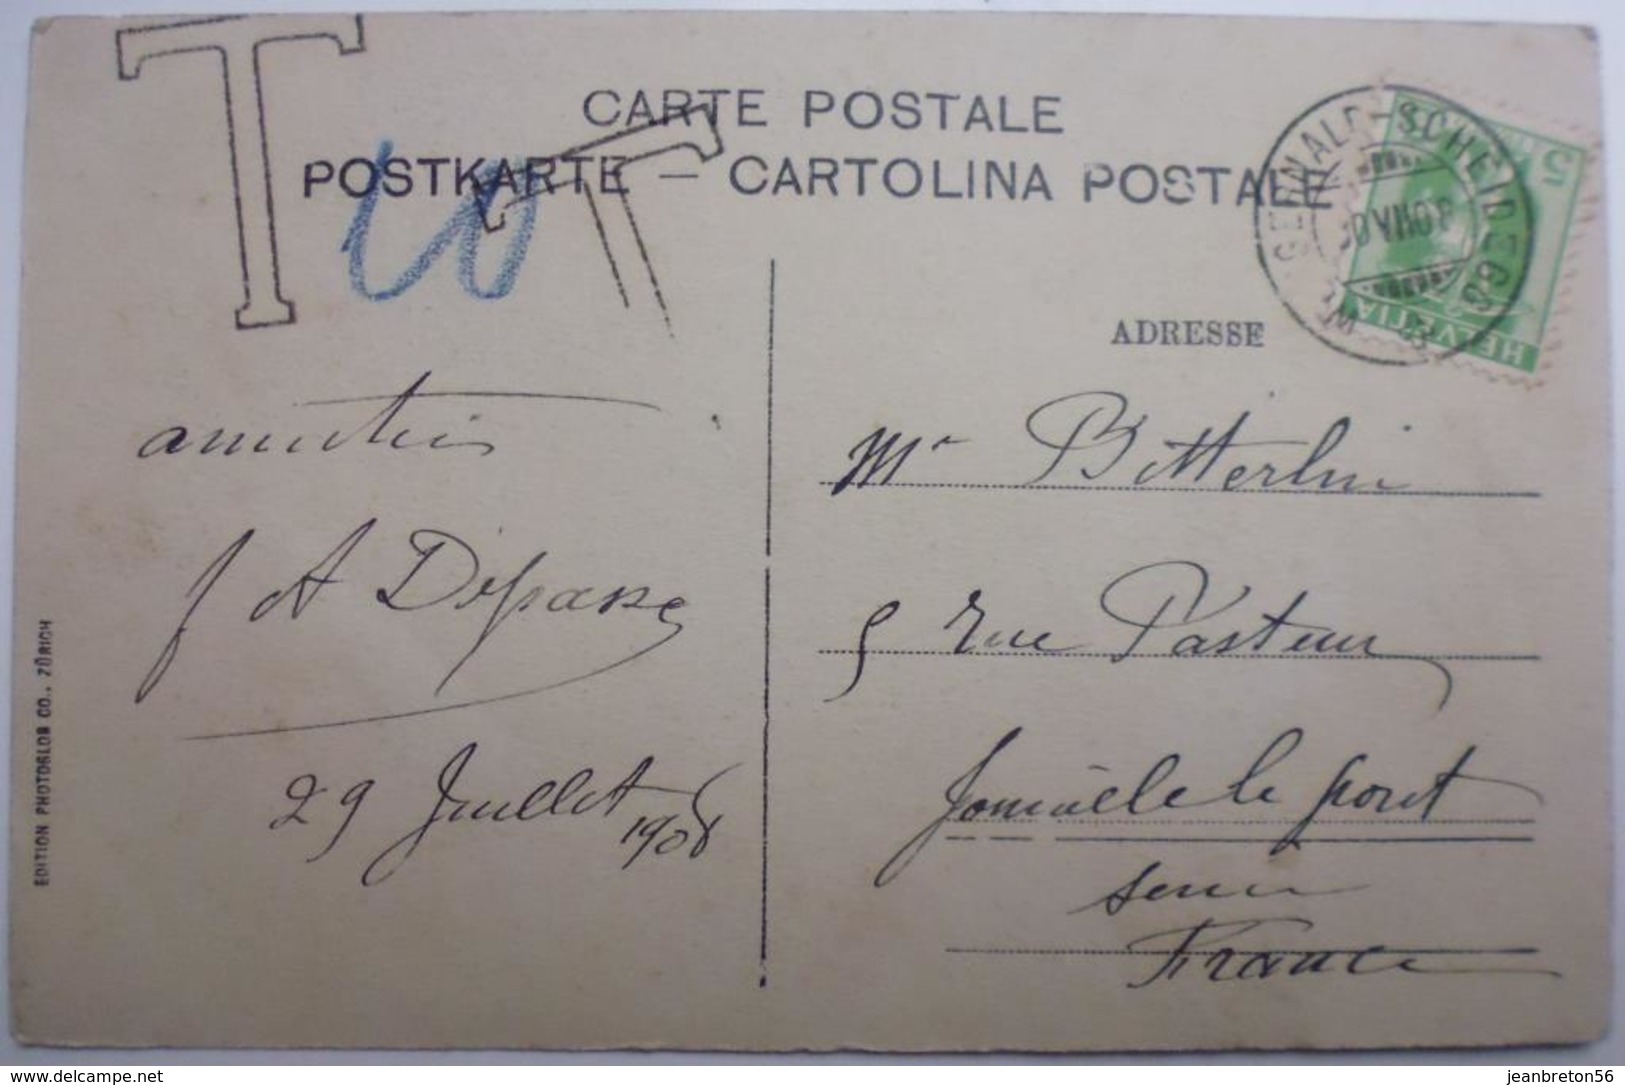 T
T
10
CARTE POSTALE
POSTKARTE — CARTOLINA POSTALE
HELVETIA
5
ADRESSE
amitiés
A Depasse
29 Juillet
1908
Mr Bitterlin
5 rue Pasteur
Joinville le pont
Seine
France
EDITION PHOTOGLOB CO., ZÜRICH
delcampe.net
jeanbreton56